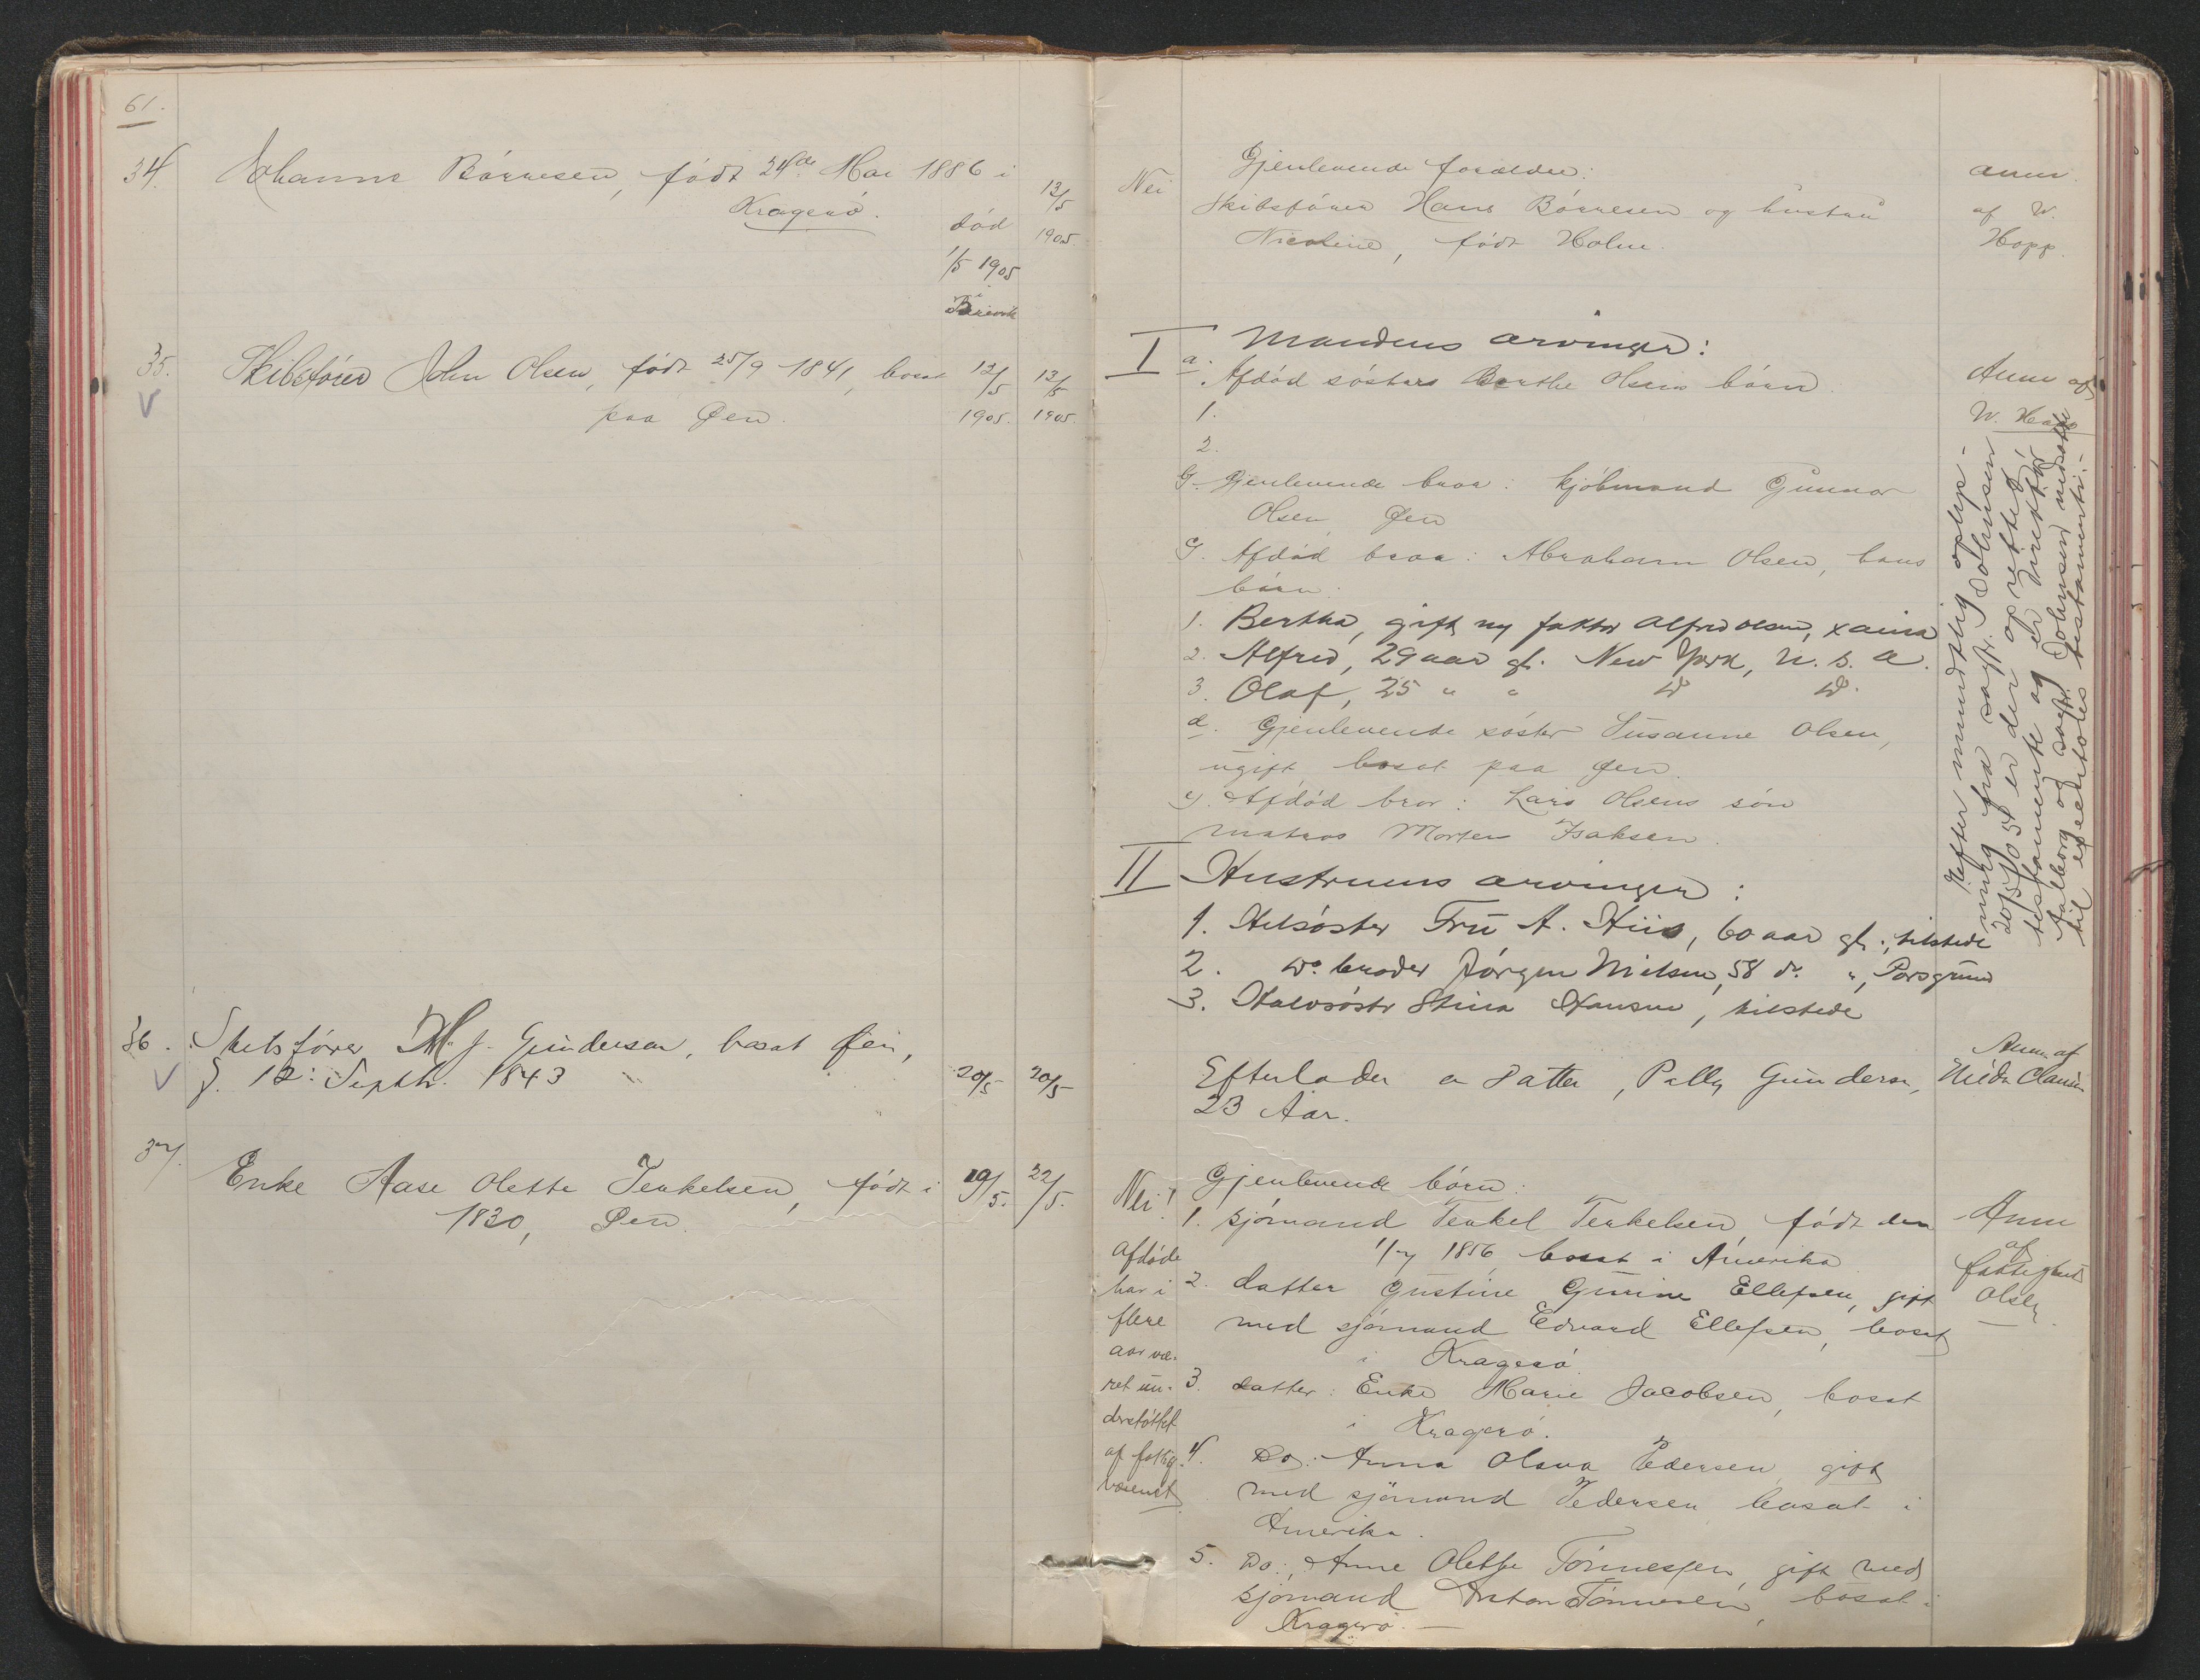 61.
34. Johanne Børresen, født 24de Mai 1886 i
Kragerø.
død
1/5 1905
i
Brevik
13/5
1905.
35. Skibsfører John Olsen, født 25/9 1841, bosat
paa Øen.
12/5
1905.
13/5
1905
36. Skibsfører M. J. Gundersen, bosat Øen,
f. 12: Septbr. 1843
20/5
20/5
37.
Enke Aase Olette Terkelsen, født i
1830, Øen.
19/5.
22/5.
Nei
Gjenlevende forældre:
Skibsfører Hans Børresen og hustru
Nicoline, født Holm.
anm.
af W.
Hopp.
I Mandens arvinger:
a. Afdød søsters Berthe Olsens børn
1.
2.
Gjenlevende bror: kjøbmand Gunnar
Olsen, Øen
Afdød bror: Abraham Olsen, hans
børn:
1. Bertha, gift m/ faktor Alfred Olsen, Xania
2. Alfred, 29 aar gl. New York, U. S. A.
3. Olaf, 25 " " Do Do.
d. Gjenlevende søster Susanne Olsen,
ugift, bosat paa Øen.
e). Afdød bror: Lars Olsens søn
matros Morten Isaksen.
II Hustruens arvinger:
1. Helsøster Fru A. Hiis, 60 aar gl., tilstede
2. Do. broder Jørgen Nielsen, 58 do. ", Porsgrund
3. Halvsøster Stina Hansen, tilstede
Anm af
W. Hopp
Efter mundtlig oplys-
ning fra sagfr. Johnsen
20/5 05 er der oprettet
testamente og er Direktør
Aalborg og sagfr. Johnsen indsatte
til executores testamenti.-
Efterlader en Datter, Pally Gundersen,
23 Aar.
Anm. af
Hilda Clausen
Nei!
Afdøde
har i
flere
aar væ-
ret un-
derstøttet
af fattig-
væsenet
Gjenlevende børn:
1. sjømand Terkel Terkelsen, født den
1/7 1856, bosat i Amerika
2. datter Gustine Gurine Ellefsen, gift
med sjømand Edvard Ellefsen, bosat
i Kragerø
3. datter: Enke Marie Jacobsen, bosat
i Kragerø.
4. Do.: Anna Olava Pedersen, gift
med sjømand Pedersen, bosat i
Amerika.
5. Do.: Anne Olette Tønnessen, gift med
sjømand Anton Tønnesen, bosat i
Kragerø. —
Anm
af
Olsen